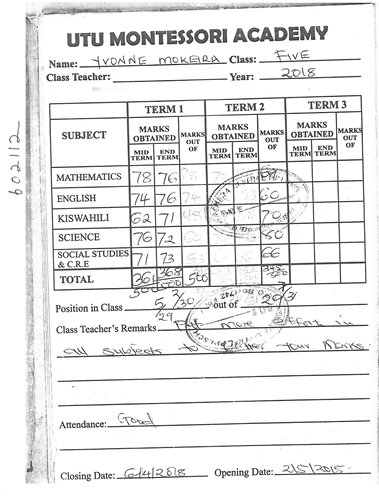 UTU MONTESSORI ACADEMY
Name: YVONNE MOKEIRA Class: FIVE
Class Teacher: Year: 2018
602112
TERM 1 TERM 2 TERM 3
SUBJECT MARKS OBTAINED MARKS OUT OF MARKS OBTAINED MARKS OUT OF MARKS OBTAINED MARKS OUT OF
MID TERM END TERM MID TERM END TERM MID TERM END TERM
MATHEMATICS 78 76
ENGLISH 74 76 60
KISWAHILI 62 71 70
SCIENCE 76 72
SOCIAL STUDIES & C.R.E 71 73 66
TOTAL 361 368 500
500 500
Position in Class 5/29 2/30 out of 29
Class Teacher's Remarks Put more effort in
all subjects to your marks.
Attendance: Good
Closing Date: 6/4/2018 Opening Date: 2/5/2015.